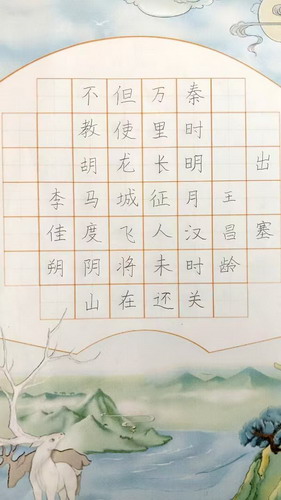 出塞
王昌龄
秦时明月汉时关
万里长征人未还
但使龙城飞将在
不教胡马度阴山
李佳朔